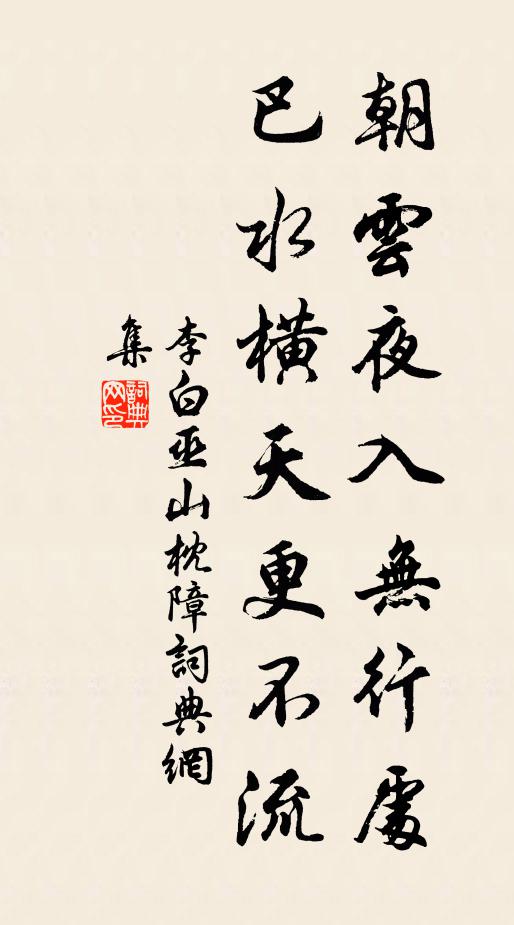 朝雲夜入無行處
巴水橫天更不流
李白巫山枕障詞典網
集
詞典網印